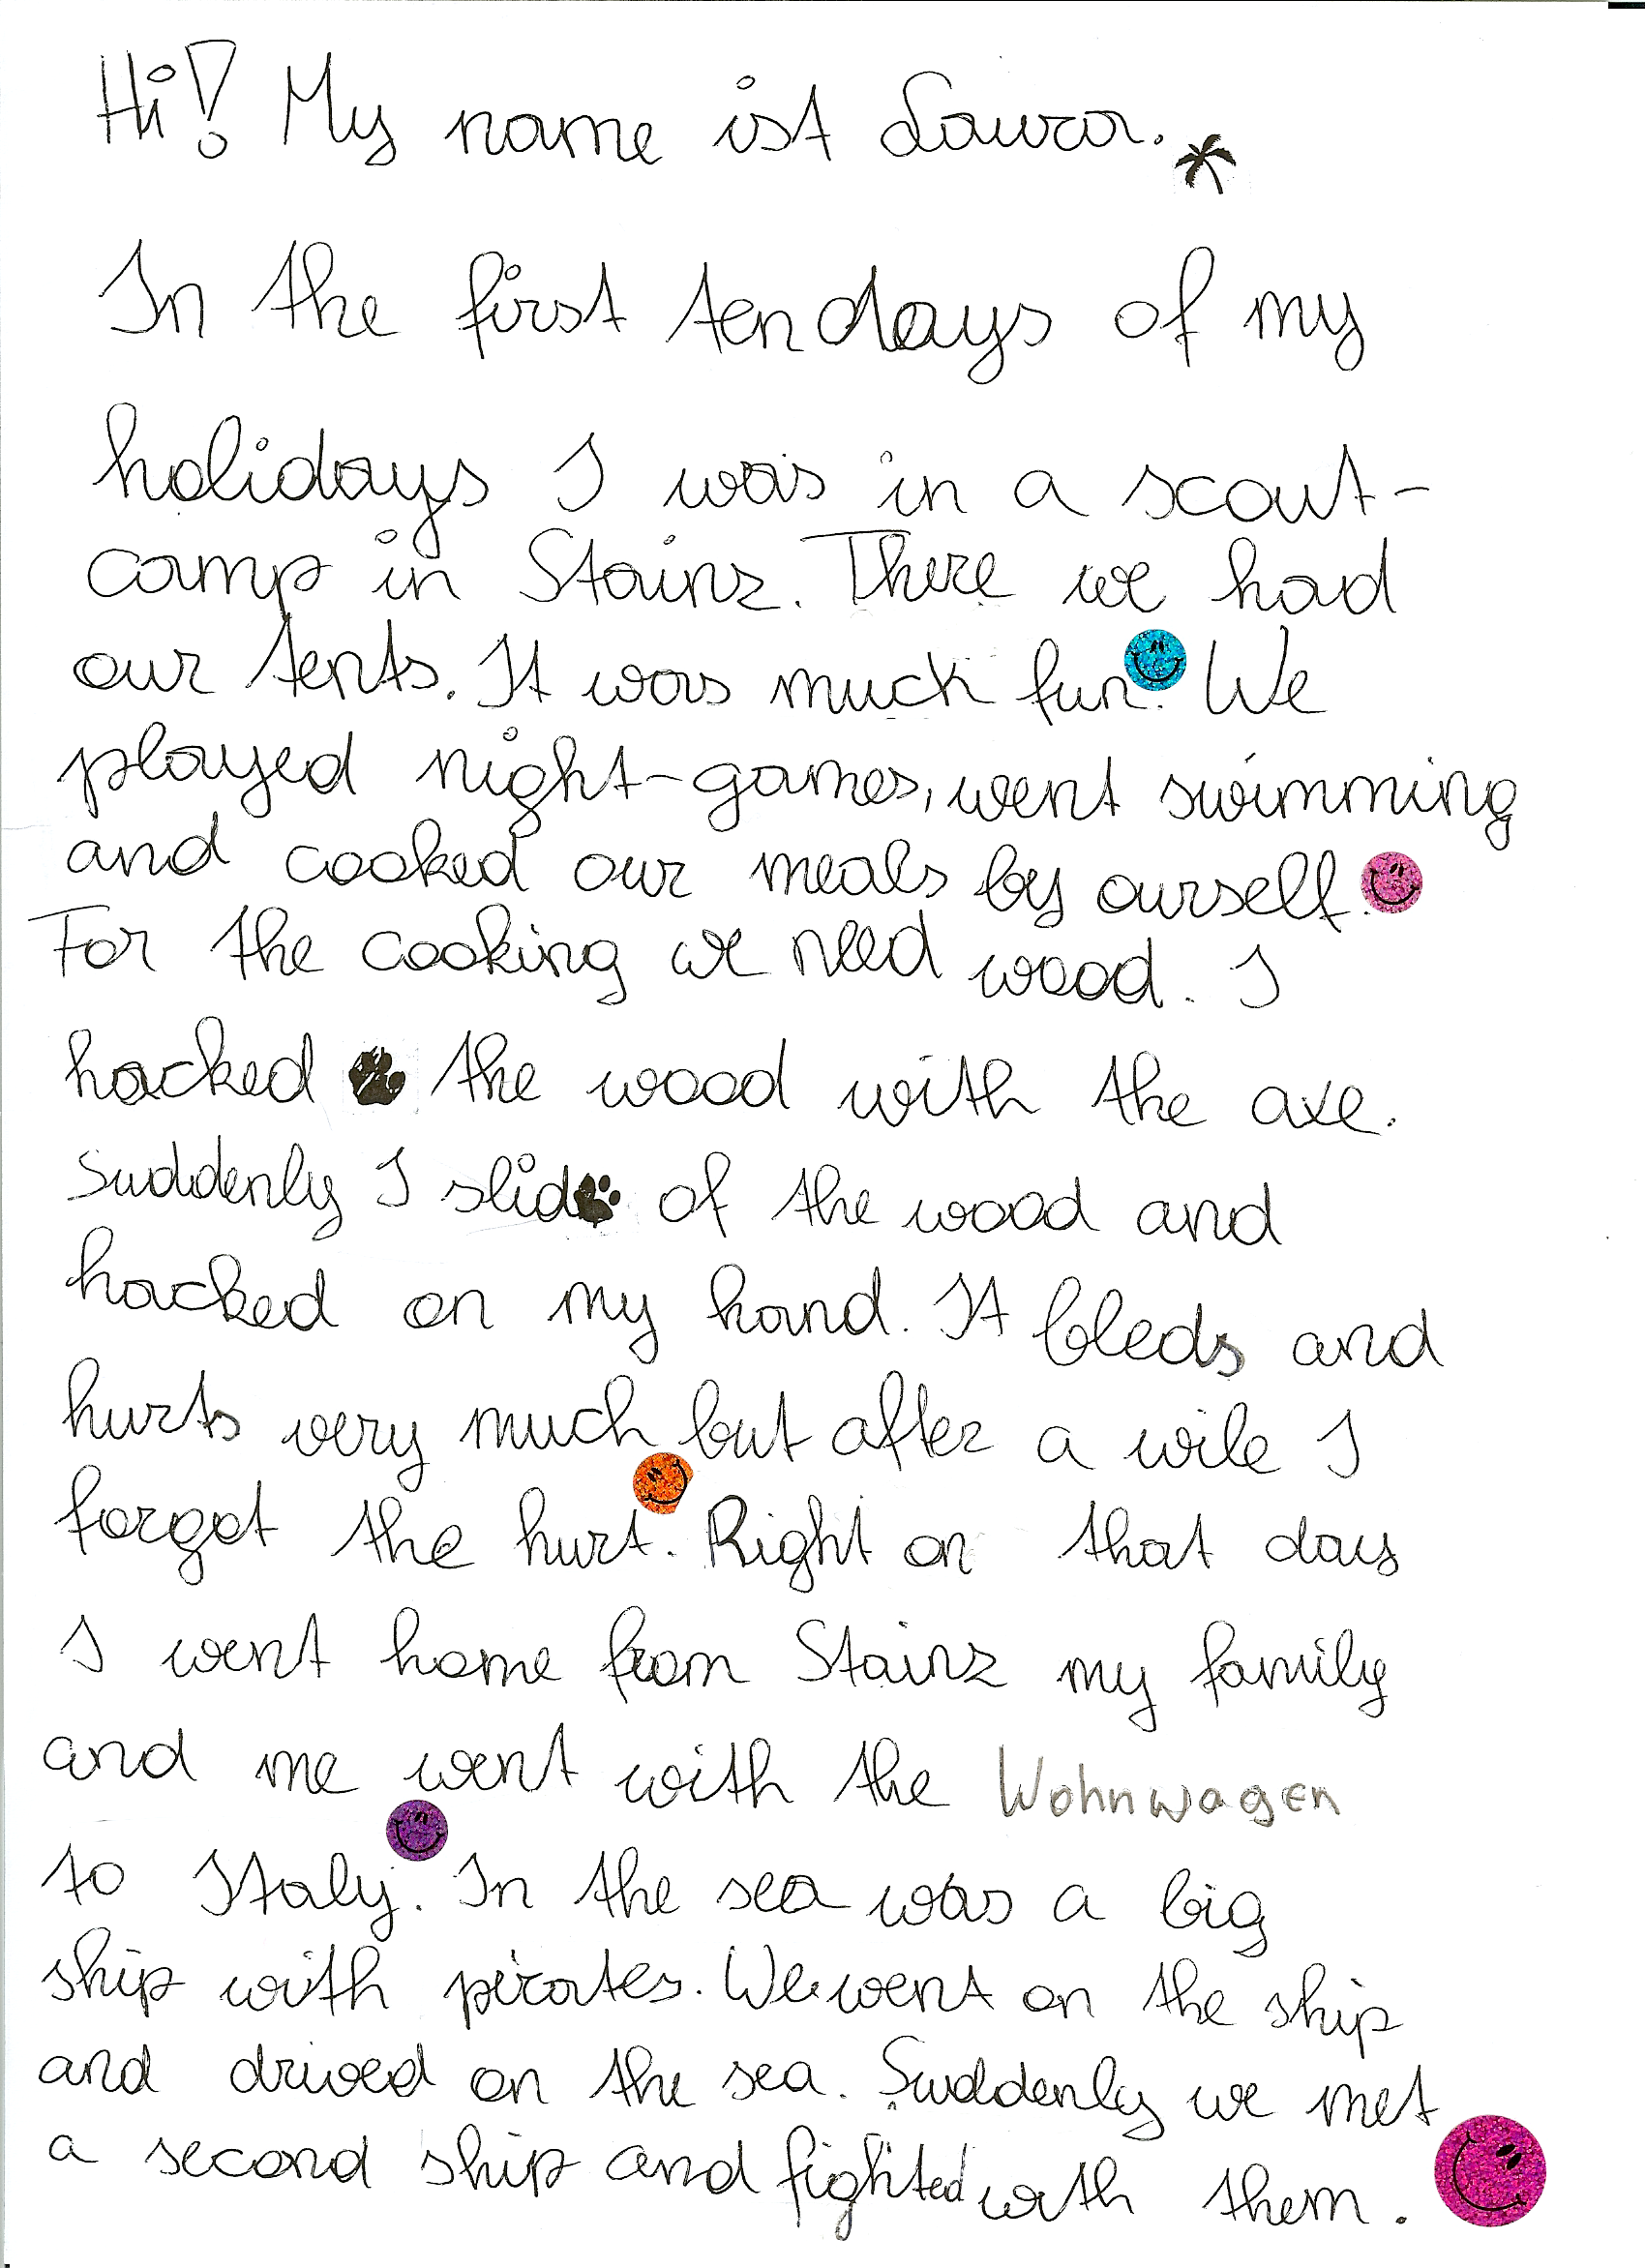 Hi! My name ist Laura.
In the first ten days of my
holidays I was in a scout-
camp in Stainz. There we had
our tents. It was much fun. We
played night-games, went swimming
and cooked our meals by ourself.
For the cooking we need wood. I
hacked the wood with the axe.
Suddenly I slid of the wood and
hacked on my hand. It bleds and
hurts very much but after a wile I
forgot the hurt. Right on that day
I went home from Stainz my family
and me went with the Wohnwagen
to Italy. In the sea was a big
ship with pirates. We went on the ship
and drived on the sea. Suddenly we met
a second ship and fighted with them.